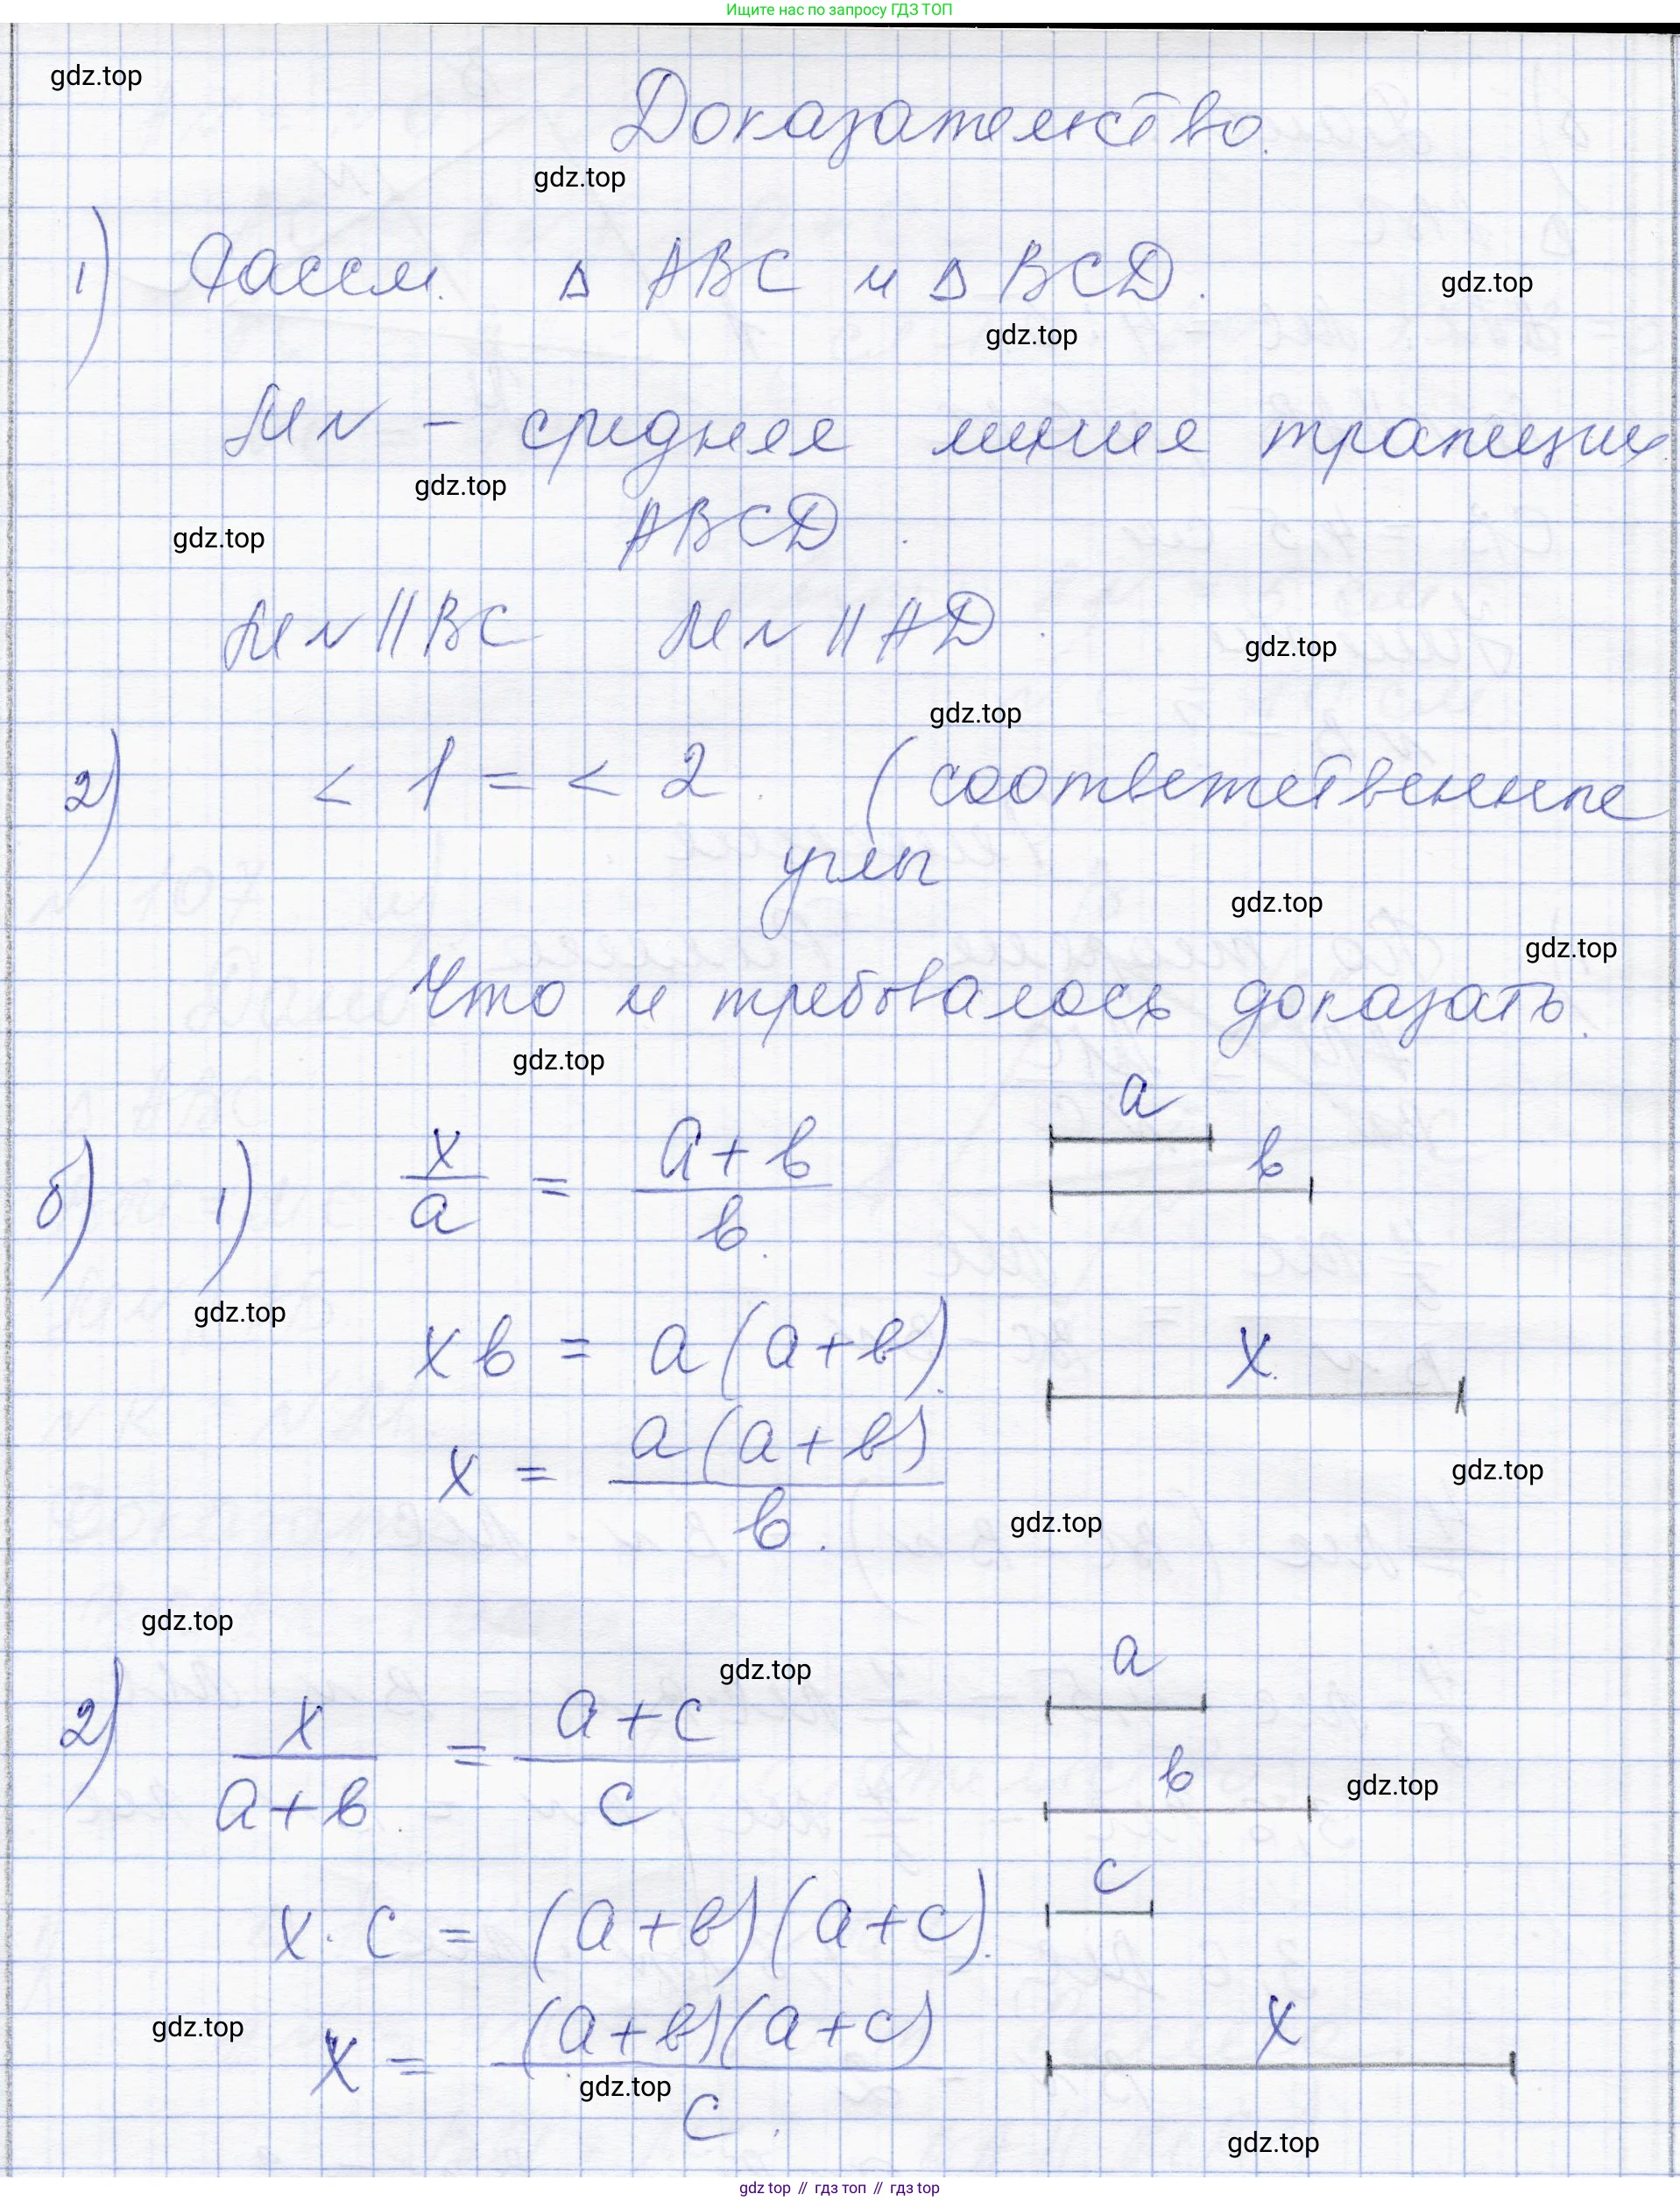 Ищите нас по запросу ГДЗ ТОП
gdz.top
Доказательство.
gdz.top
1) Рассм. Δ ABC и Δ BCD.
gdz.top
gdz.top
MN – средняя линия трапеции
gdz.top
ABCD.
gdz.top
MN || BC MN || AD.
gdz.top
gdz.top
2) < 1 = < 2. (соответственные
углы
gdz.top
gdz.top
Что и требовалось доказать.
gdz.top
a
б) 1) x/a = (a+b)/b.
b
gdz.top
xb = a(a+b).
x
x = a(a+b)/b.
gdz.top
gdz.top
gdz.top
gdz.top
a
2) x/(a+b) = (a+c)/c
b
gdz.top
c
x·c = (a+b)(a+c).
gdz.top
x
x = (a+b)(a+c)/c.
gdz.top
gdz.top
gdz top // гдз топ // гдз top